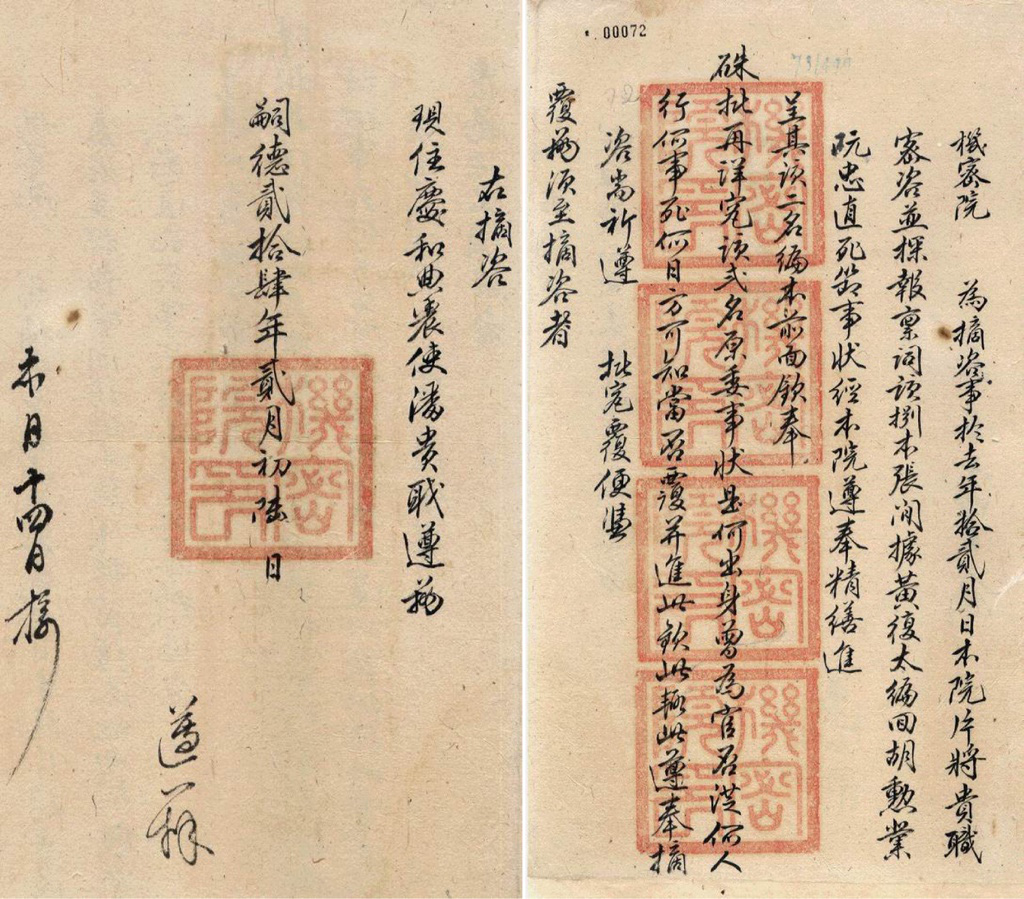 00072
機密院 為摘咨事於去年拾貳月日本院片將貴職
密咨並探報稟詞該捌本張闭據黃復太編回胡勲業
阮忠直死節事狀經本院遵奉精繕進
呈其該二名編本前面欽奉
硃批再詳究該弍名原委事狀是何出身曾為官否洪何人
行何事死何日方可知當否覆并進此欽此輒此遵奉摘
咨尚祈遵 批究覆便憑
覆茲須至摘咨者
機密院印
機密院印
機密院印
機密院印
右摘咨
現住慶和典農使潘貴職遵茲
嗣德貳拾肆年貳月初陸日
機密院印
本月十四日接